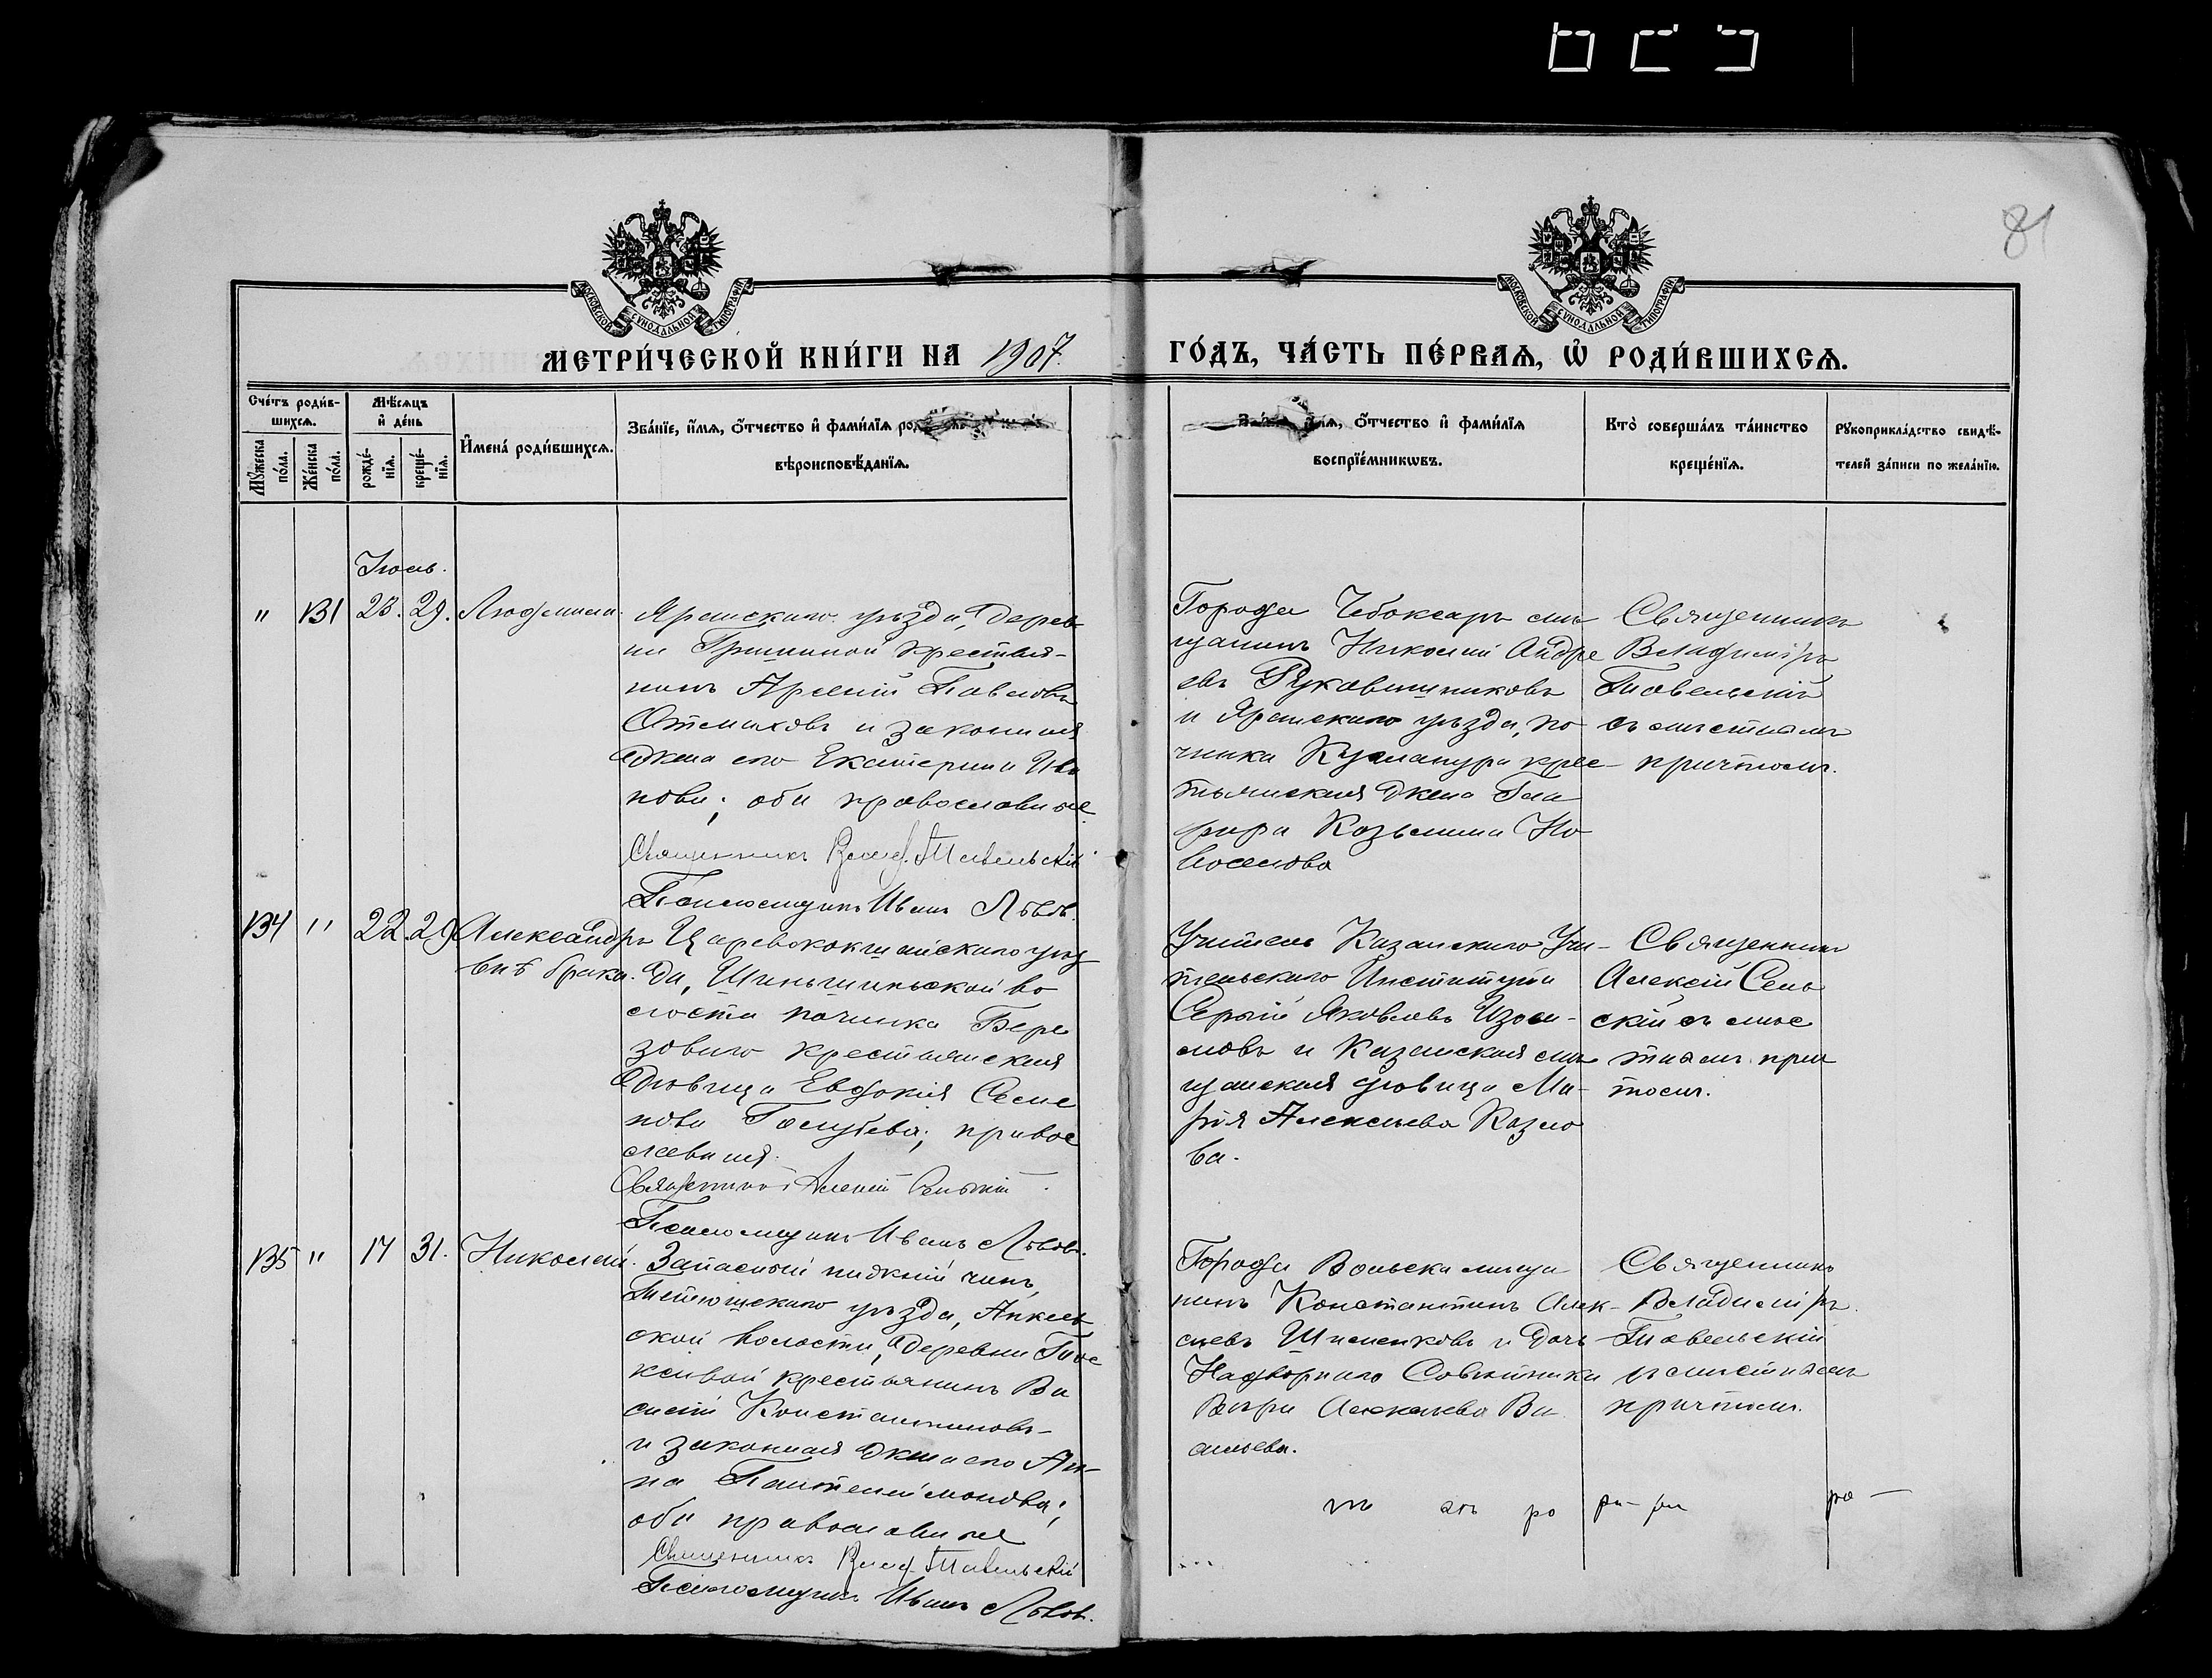 81
МОСКОВСКОЙ СѴНОДАЛЬНОЙ ТИПОГРАФІИ
МОСКОВСКОЙ СѴНОДАЛЬНОЙ ТИПОГРАФІИ
МЕТРИ́ЧЕСКОЙ КНИ́ГИ НА 1907.
ГО́ДЪ, ЧА́СТЬ ПЕ́РВАѦ, Ѽ РОДИ́ВШИХСѦ.
Сче́тъ роди́в-
шихсѧ.
Мꙋ́жеска
по́ла.
Же́нска
по́ла.
Мѣ́сѧцъ
и҆ де́нь
рожде́-
нїѧ.
креще́-
нїѧ.
И҆мена̀ роди́вшихсѧ.
Зва́нїе, и҆́мѧ, ѻ҆́тчество и҆ фами́лїѧ
вѣроисповѣ́данїѧ.
ѻ҆́тчество и҆ фами́лїѧ
воспрїе́мникѡвъ.
Кто̀ соверша́лъ та́инство
креще́нїѧ.
Рꙋкоприкла́дство свидѣ́-
телей за́писи по жела́нїю.
Іюль.
" 131 23. 29. Людмила.
Яранскаго уѣзда, дерев
ни Гришиной крестья-
нинъ Арсеній Павловъ
и законная
жена его Екатерина Ива
нова; оба православные
Священникъ Влад. Тавельскій
Псаломщикъ Иванъ Львовъ.
Города Чебоксаръ мѣ
щанинъ Николай Андре
евъ Рукавишниковъ
и Яранскаго уѣзда, по
чинка крес-
тьянская жена Гла
фира Козьмина Но
воселова
Священникъ
Владиміръ
Тавельскій
съ мѣстнымъ
причтомъ.
134 " 22. 29. Александръ
внѣ брака.
Царевококшайскаго уѣз
да, Шиньшинской во
лости починка Бере
зоваго крестьянская
дѣвица Евдокія Семе
нова Голубева; правос
лавная.
Священникъ Алексій
Псаломщикъ Иванъ Львовъ.
Учитель Казанскаго Учи-
тельскаго Института
Сергій Яковлевъ
и Казанская мѣ
щанская дѣвица Ма-
рія Алексѣева Козло
ва.
Священникъ
Алексій
съ мѣс
тнымъ прич
томъ.
135 " 17 31. Николай.
Запасный нижній чинъ,
Тетюшскаго уѣзда,
ской волости, деревни
крестьянинъ Ва
силій Константиновъ
и законная жена его Ан-
на Пантелеймонова;
оба православные
Священникъ Влад. Тавельскій
Псаломщикъ Иванъ Львовъ.
Города Вольска мѣща
нинъ Константинъ Алек-
сѣевъ и дочь
Надворнаго Совѣтника
Вѣра Алексѣева Ва
сильева.
Священникъ
Владиміръ
Тавельскій
съ мѣстнымъ
причтомъ.